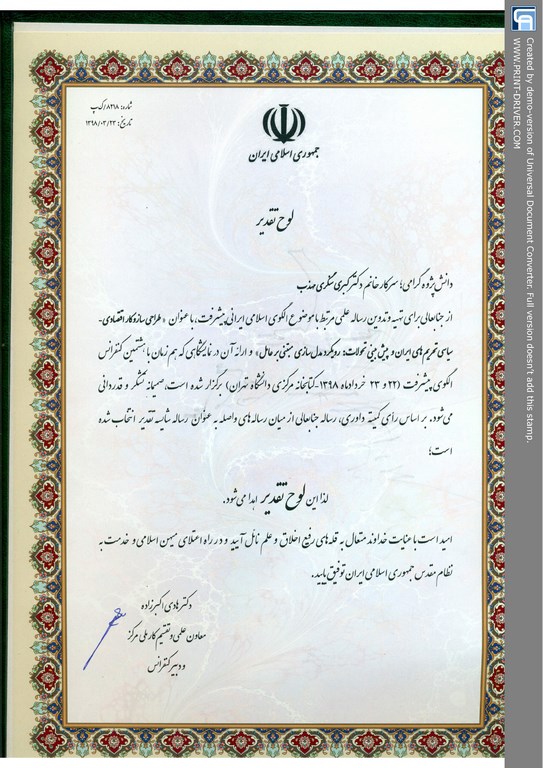 شماره: ۸۲۱۸/ر ک پ
تاریخ: ۱۳۹۸/۰۳/۲۳
جمهوری اسلامی ایران
لوح تقدیر
دانش پژوه گرامی؛ سرکار خانم دکتر کبری سنگری مهذب
از جنابعالی برای تهیه و تدوین رساله علمی مرتبط با موضوع الگوی اسلامی ایرانی پیشرفت، با عنوان « طراحی سازوکار اقتصادی-
سیاسی تحریم های ایران و پیش بینی تحولات: رویکرد مدل سازی مبتنی بر عامل» و ارائه آن در نمایشگاهی که هم زمان با هشتمین کنفرانس
الگوی پیشرفت (۲۲ و ۲۳ خردادماه ۱۳۹۸-کتابخانه مرکزی دانشگاه تهران) برگزار شده است، صمیمانه تشکر و قدردانی
می شود. بر اساس رأی کمیته داوری، رساله جنابعالی از میان رساله های واصله به عنوان رساله شایسته تقدیر انتخاب شده
است؛
لذا این لوح تقدیر اهدا می شود.
امید است با عنایت خداوند متعال به قله های رفیع اخلاق و علم نائل آیید و در راه اعتلای میهن اسلامی و خدمت به
نظام مقدس جمهوری اسلامی ایران توفیق یابید.
دکتر هادی اکبرزاده
معاون علمی و تقسیم کار ملی مرکز
و دبیر کنفرانس
Created by demo-version of Universal Document Converter. Full version doesn't add this stamp.
WWW.PRINT-DRIVER.COM